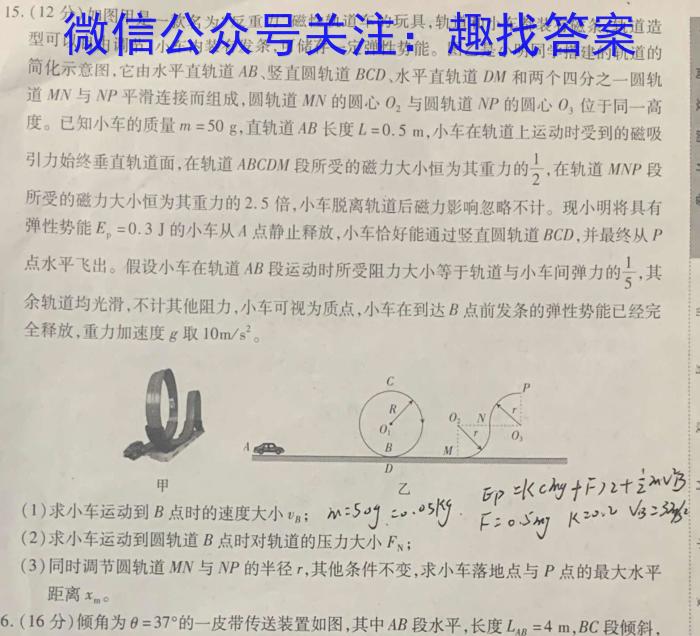 15.(12分)如图甲是一款名为"反重力"磁性轨道车的玩具,轨
微信公众号关注:趣找答案
简化示意图,它由水平直轨道 AB、竖直圆轨道 BCD、水平直轨道 DM 和两个四分之一圆轨
道 MN 与 NP 平滑连接而组成,圆轨道 MN 的圆心 O₂ 与圆轨道 NP 的圆心 O₃ 位于同一高
度。已知小车的质量 m=50 g,直轨道 AB 长度 L=0.5 m,小车在轨道上运动时受到的磁吸
引力始终垂直轨道面,在轨道 ABCDM 段所受的磁力大小恒为其重力的1/2,在轨道 MNP 段
所受的磁力大小恒为其重力的 2.5 倍,小车脱离轨道后磁力影响忽略不计。现小明将具有
弹性势能 Eₚ=0.3 J 的小车从 A 点静止释放,小车恰好能通过竖直圆轨道 BCD,并最终从 P
点水平飞出。假设小车在轨道 AB 段运动时所受阻力大小等于轨道与小车间弹力的1/5,其
余轨道均光滑,不计其他阻力,小车可视为质点,小车在到达 B 点前发条的弹性势能已经完
全释放,重力加速度 g 取 10m/s²。
C
R
O₁
B
D
A
O₂
N
P
r
r
O₃
M
甲
乙
Ep=K(mg+F)L+½mv²B
(1)求小车运动到 B 点时的速度大小 v_B; m=50g=0.05kg.
F=0.5mg K=0.2
(2)求小车运动到圆轨道 B 点时对轨道的压力大小 F_N;
(3)同时调节圆轨道 MN 与 NP 的半径 r,其他条件不变,求小车落地点与 P 点的最大水平
距离 xₘ。
6.(16分)倾角为 θ=37°的一皮带传送装置如图,其中 AB 段水平,长度 L_AB=4 m,BC 段倾斜,